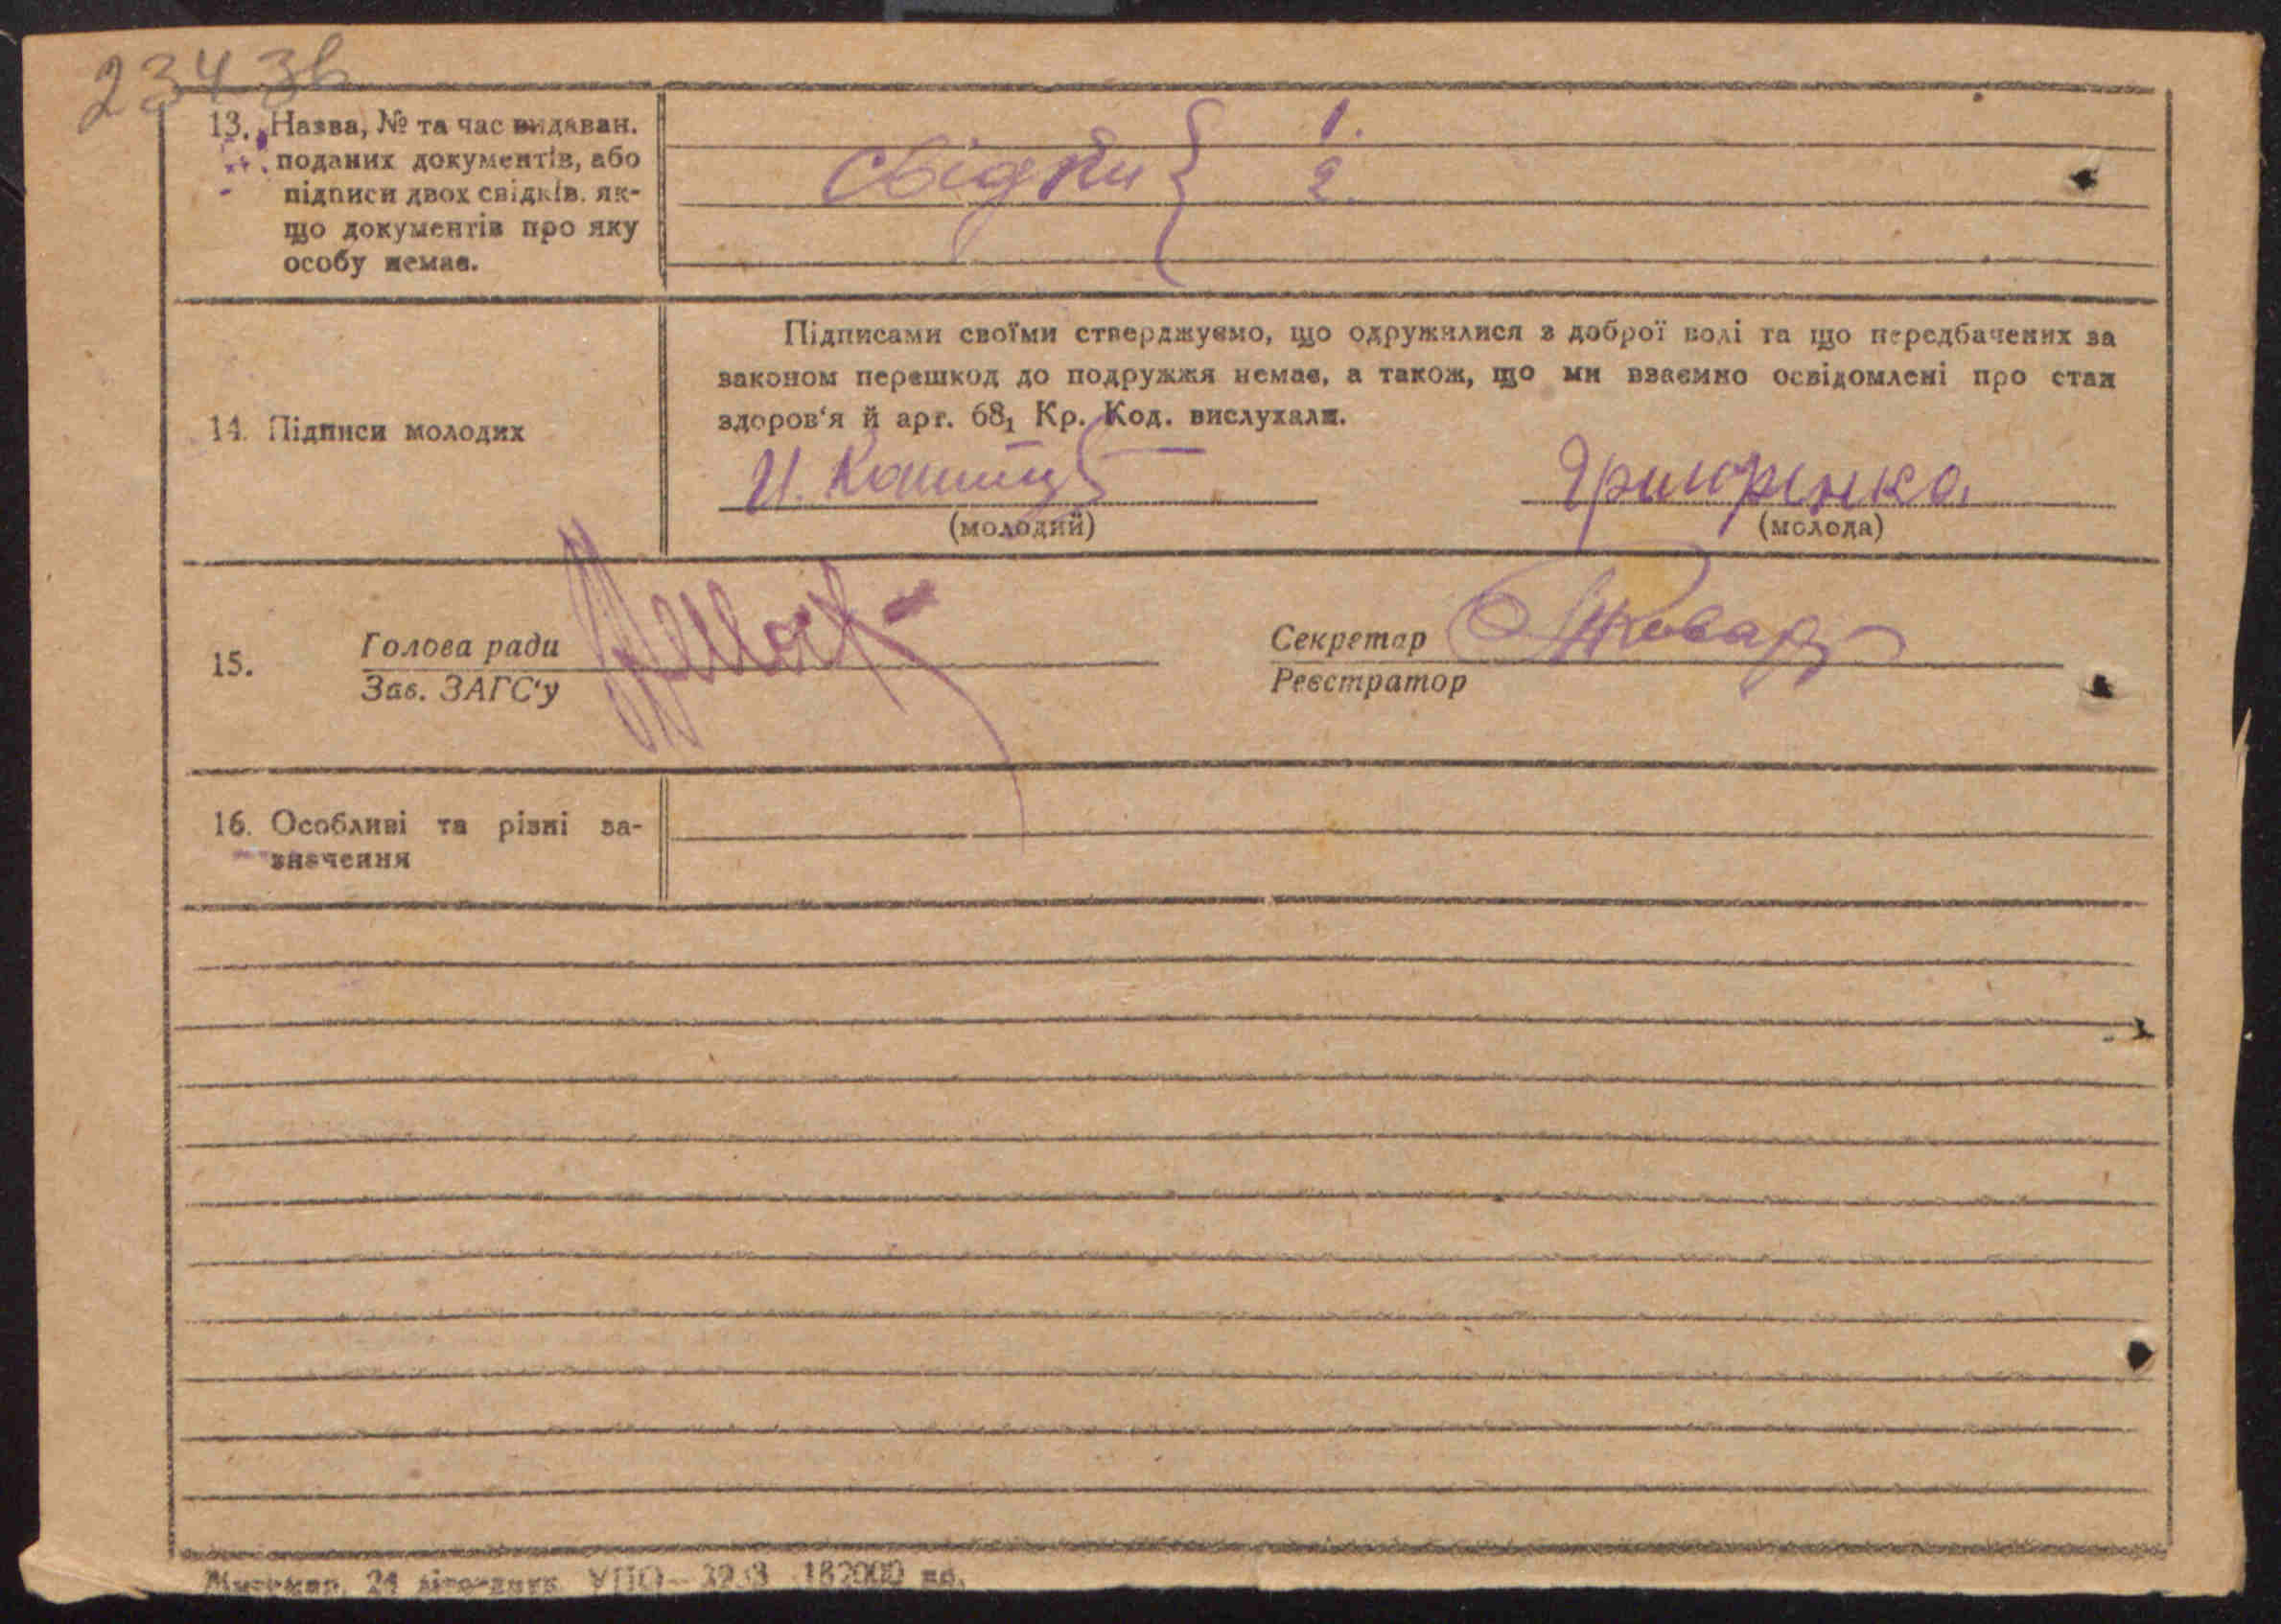 234 зв
13. Назва, № та час видаван.
поданих документів, або
підписи двох свідків, як-
що документів про яку
особу немає.
свідки { 1.
2.
Підписами своїми стверджуємо, що одружилися з доброї волі та що передбачених за
законом перешкод до подружжя немає, а також, що ми взаємно освідомлені про стан
здоров'я й арт. 68₁ Кр. Код. вислухали.
14. Підписи молодих
(молодий)
(молода)
15.
Голова ради
Зав. ЗАГС'у
Секретар
Реєстратор
16. Особливі та різні за-
значення
24 УПО — 182000